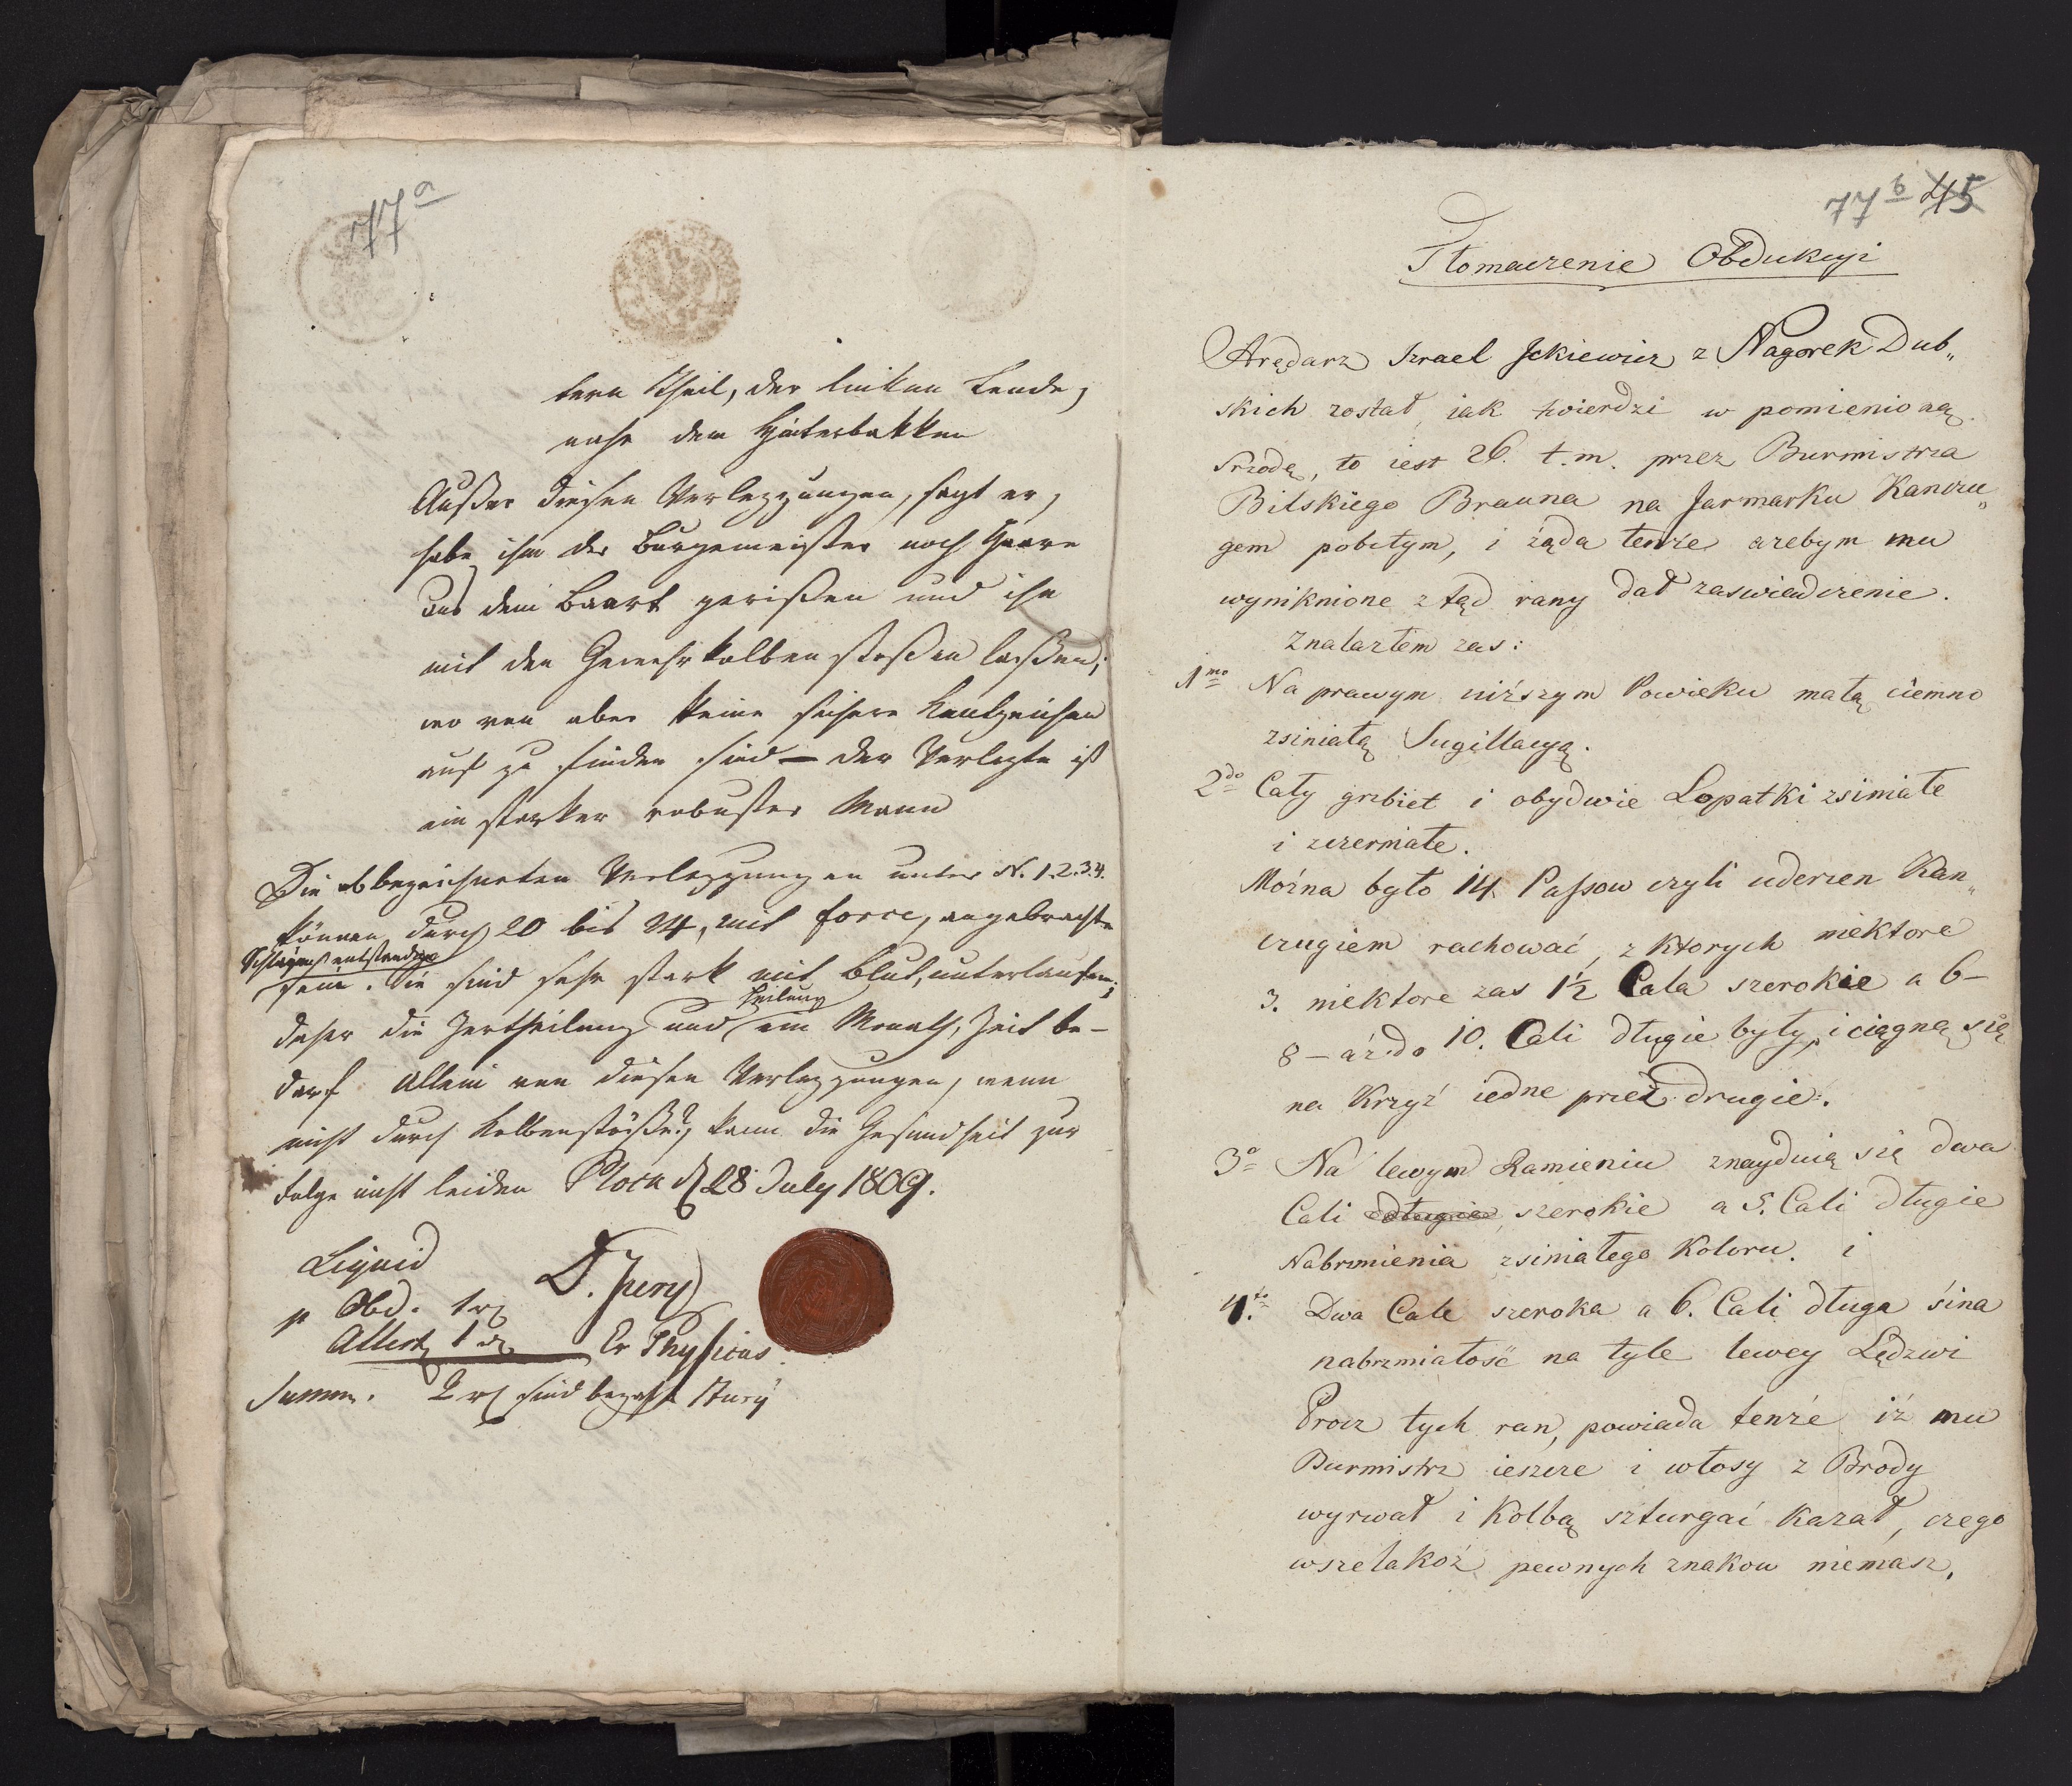 77a
tern Theil, der linken Lende,
nahe dem Hinterbakken
Außer diesen Verlezzungen, sagt er,
habe ihm der Burgemeister noch Haare
aus dem Baart gerißen und ihn
mit den Gewehrkolben stoßen laßen;
wo von aber keine sichere Kentzeichen
auf zu finden sind — der Verlezte ist
ein starker robuster Mann
Die obbezeichneten Verlezzungen unter N. 1.2.3.4.
können durch 20 bis 24, mit force, angebrachte
Schläge entstanden
sein. Sie sind sehr stark mit Blut unterlaufen;
daher die Zertheilung und Heilung ein Monath, Zeit be-
darf. Allein von diesen Verlezzungen, wenn
nicht durch Kolbenstöße, kann die Gesundheit zur
folge nicht leiden Plock d 28 July 1809.
Liquid
p Obd. 1 r
Attest 1 r
D.
Er Physicus.
Summ. 2 r sind bezahlt
77b 45
Tłomaczenie Obdukcyi
Arędarz Izrael Ickiewicz z Nagorek Dub„
skich został iak twierdzi w pomienioną
Srzodę, to iest 26. t.m. przez Burmistrza
Bilskiego Brauna na Jarmarku Kanczu„
gem pobitym, i żąda tenże ażebym mu
wyniknione ztąd rany dał zaswiadczenie.
Znalazłem zas:
1mo Na prawym niższym Powieku małą ciemno
zsiniałą Sugillacyą.
2do Cały grzbiet i obydwie Lopatki zsiniałe
i zczerniałe.
Można było 14 Passow czyli uderzen Kan„
czugiem rachować, z ktorych niektore
3. niektore zas 1½ Cala szerokie a 6-
8 - aż do 10. Cali długie były, i ciągną się
na Krzyż iedne przez drugie.
3o Na lewym Ramieniu znayduią się dwa
Cali długie szerokie a 5. Cali długie
Nabrzmienia zsiniałego Koloru. i
4to. Dwa Cale szeroka a 6. Cali długa sina
nabrzmiałość na tyle lewey Lędzwi
Procz tych ran, powiada tenże iż mu
Burmistrz ieszcze i włosy z Brody
wyrwał i Kolbą szturgać kazał, czego
wszelakoż pewnych znakow niemasz,